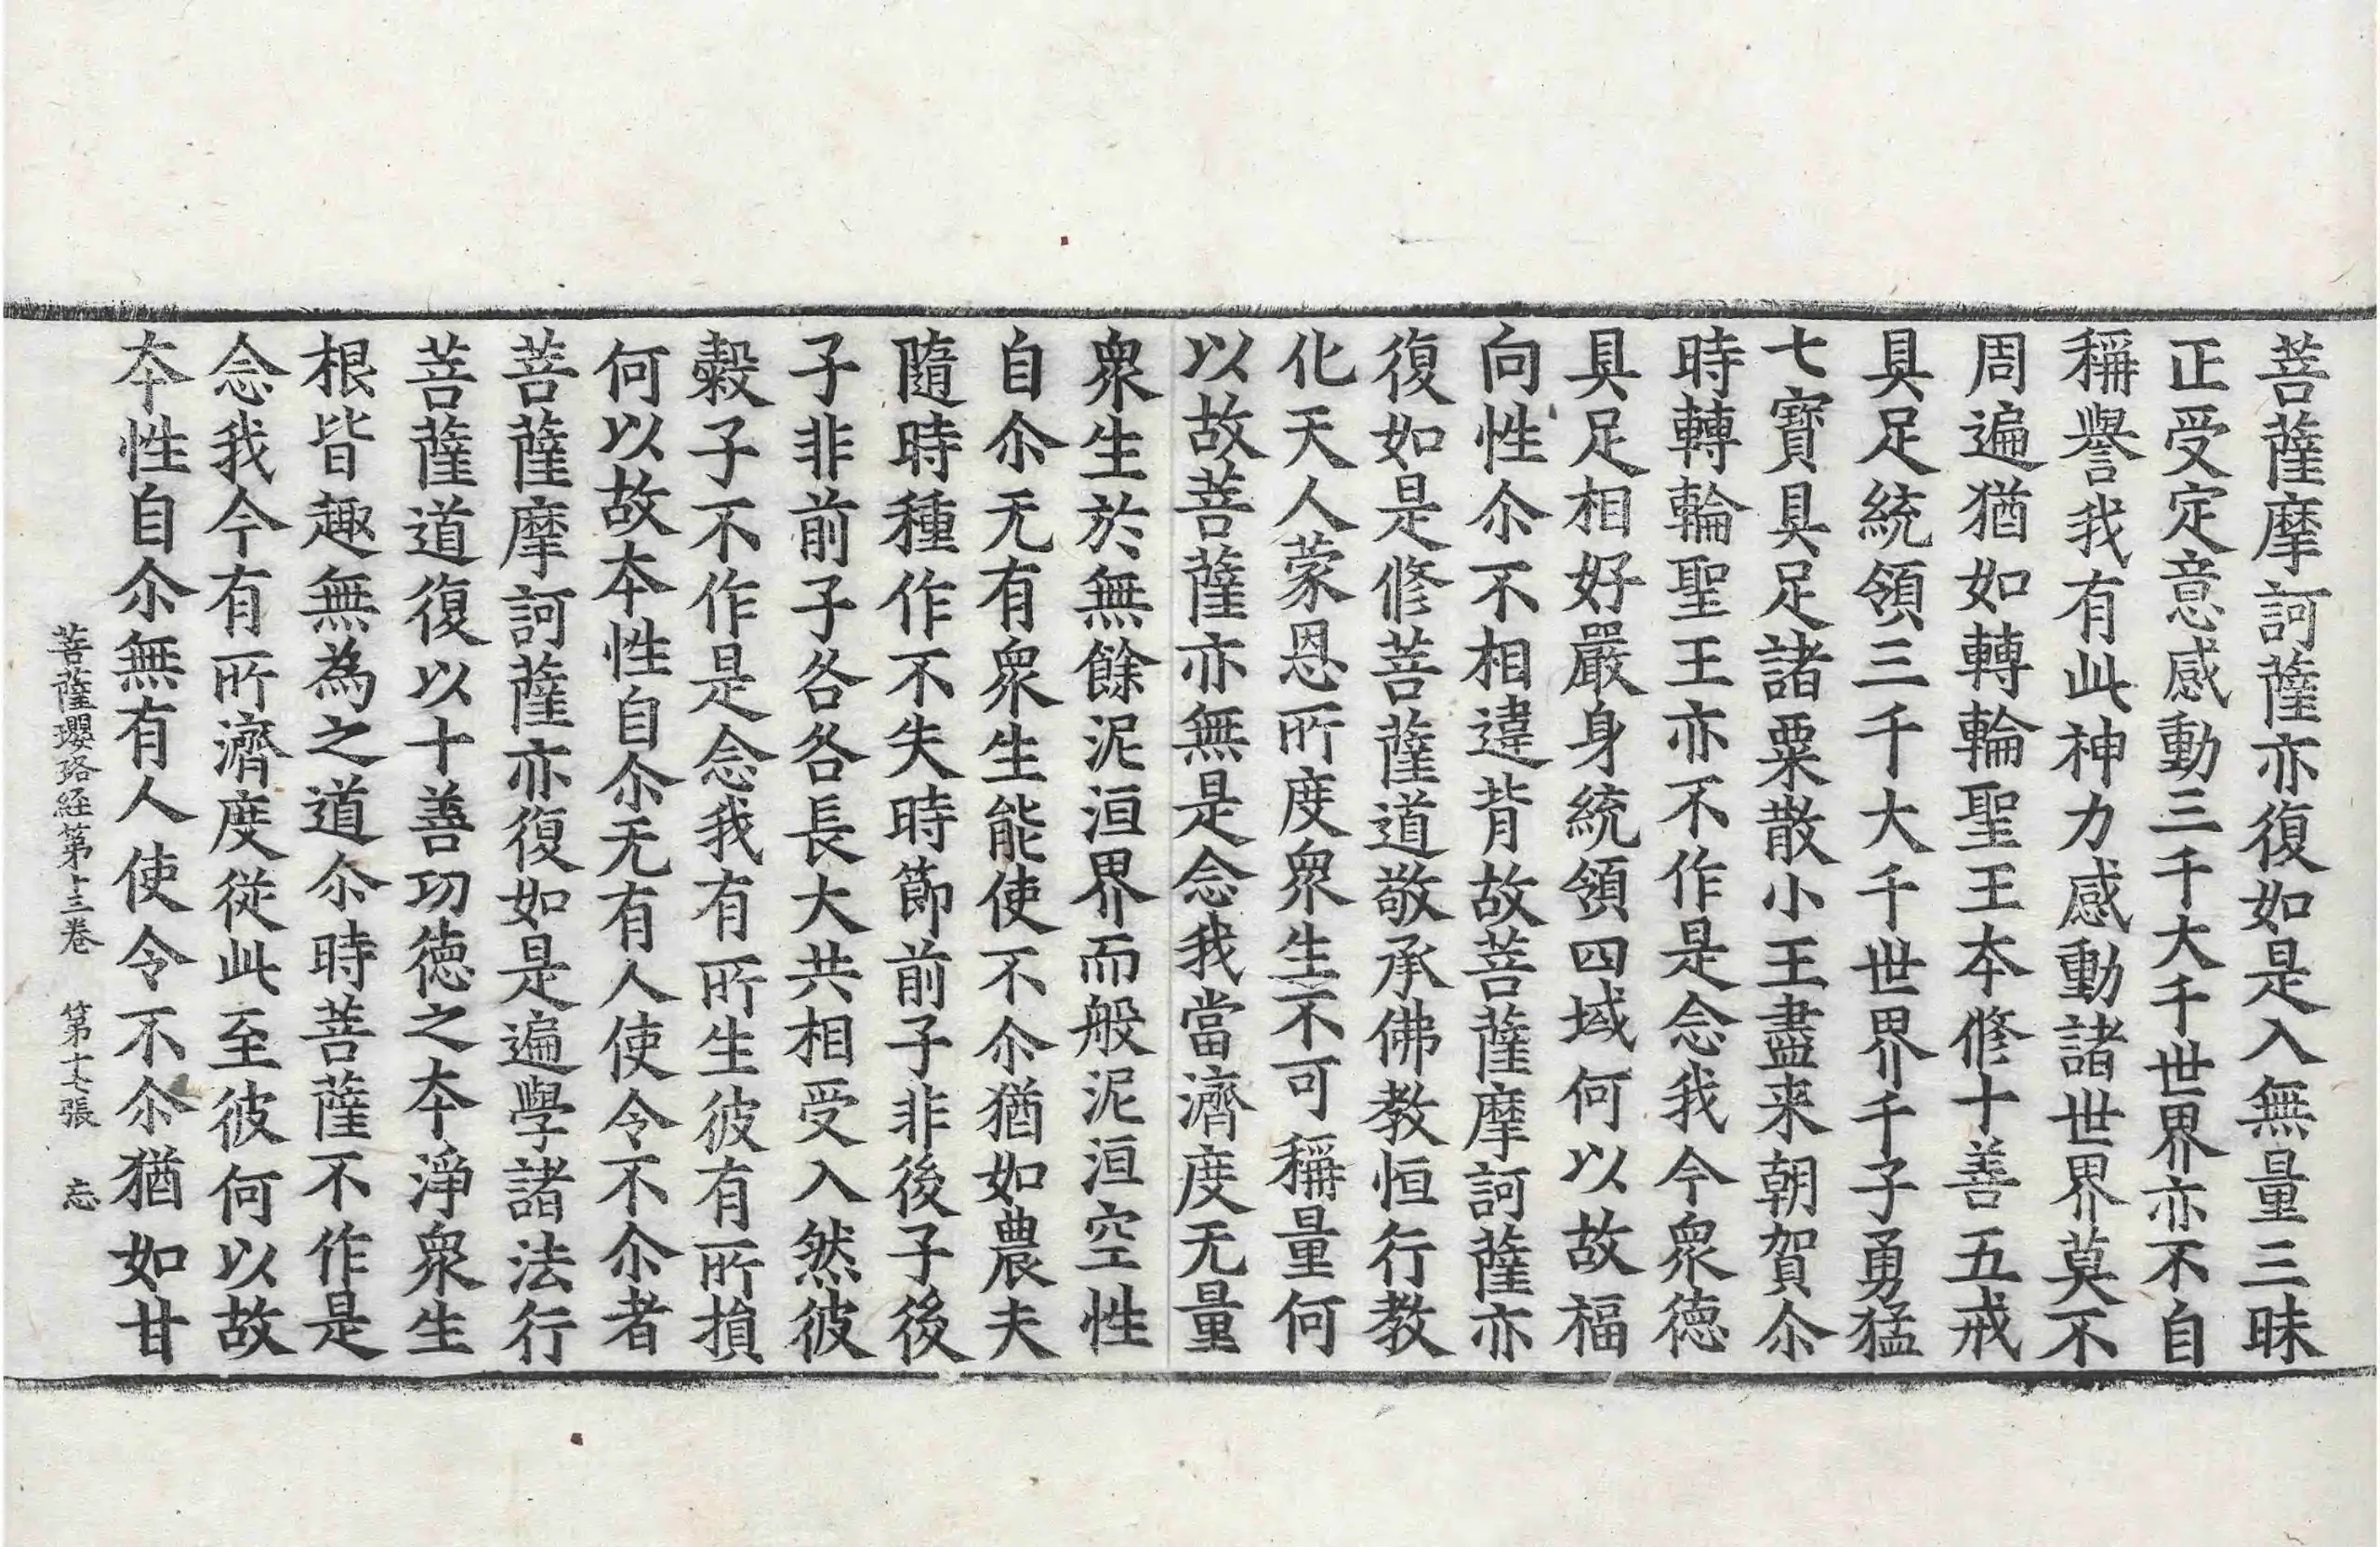 菩薩摩訶薩亦復如是入無量三昧
正受定意感動三千大千世界亦不自
稱譽我有此神力感動諸世界莫不
周遍猶如轉輪聖王夲修十善五戒
具足統領三千大千世界千子勇猛
七寶具足諸粟散小王盡来朝賀尒
時轉輪聖王亦不作是念我今衆徳
具足相好嚴身統領四域何以故福
向性尒不相違背故菩薩摩訶薩亦
復如是修菩薩道敬承佛教恒行教
化天人蒙恩所度衆生不可稱量何
以故菩薩亦無是念我當濟度无量
衆生於無餘泥洹界而般泥洹空性
自尒无有衆生能使不尒猶如農夫
隨時種作不失時節前子非後子後
子非前子各各長大共相受入然彼
穀子不作是念我有所生彼有所損
何以故夲性自尒无有人使令不尒者
菩薩摩訶薩亦復如是遍學諸法行
菩薩道復以十善功徳之夲淨衆生
根皆趣無為之道尒時菩薩不作是
念我今有所濟度從此至彼何以故
夲性自尒無有人使令不尒猶如甘
菩薩瓔珞経第十三卷 第十七張 忘